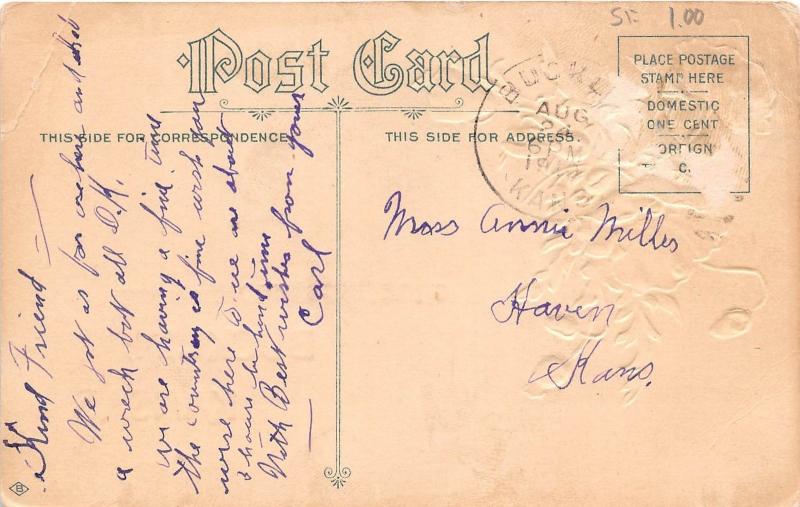 SF 1.00
Post Card
THIS SIDE FOR CORRESPONDENCE
THIS SIDE FOR ADDRESS.
PLACE POSTAGE
STAMP HERE
DOMESTIC
ONE CENT
FOREIGN
C.
AUG
6 PM
KAN
Kind Friend —
We got as far as here and had
a wreck but all O.K.
we are having a fine time
the country is fine wish you
were here to we are about
2 hours behind time
With Best wishes from yours
Carl
Miss Annie Miller
Haven
Kans.
B